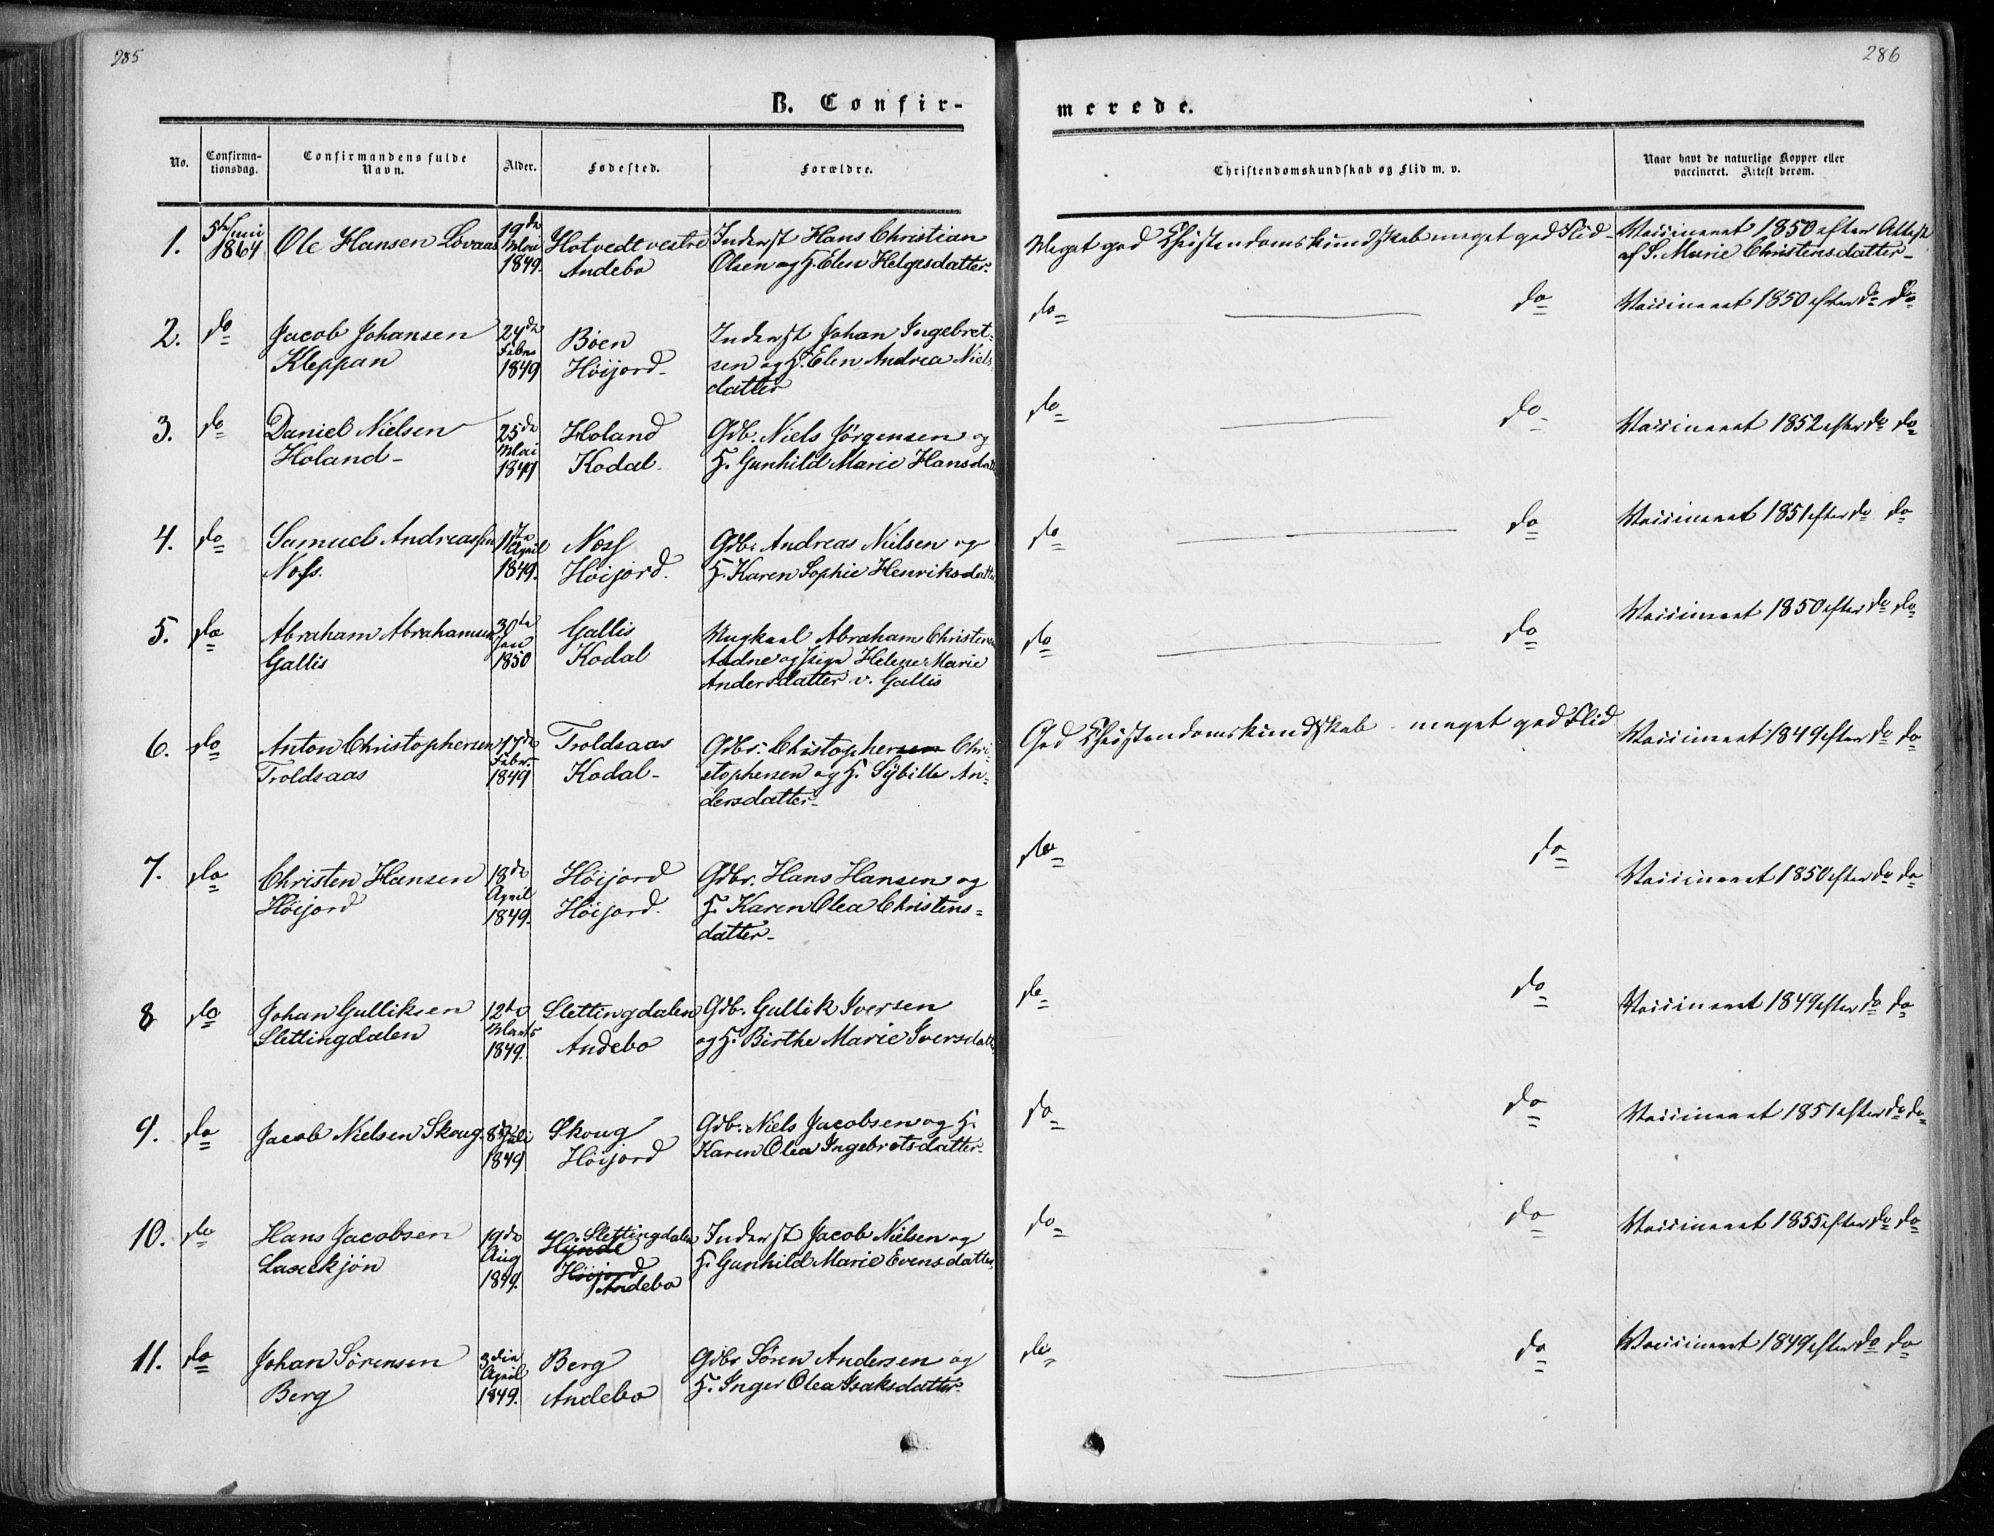 285
286
B. Confir-
merede.
No.
Confirma-
tionsdag.
Confirmandens fulde
Navn.
Alder.
Fødested.
Forældre.
Christendomskundskab og Flid m. v.
Naar havt de naturlige Kopper eller
vaccineret. Attest derom.
1. 5te Juni 1864 Ole Hansen Lovaas 19de Mai 1849. Hotvedt vestre Inderst Hans Christian Meget god Christendomskundskab meget god Flid Vaccineret 1850 efter Attest
Andebo Olsen og H. Elen Helgesdatter. af S. Marie Christensdatter
2. do Jacob Johansen 24de Febr 1849 Bøen Inderst Johan Ingebret- do do Vaccineret 1850 efter do do
Kleppan Høijord sen og H. Elen Andrea Niels
datter
3. do Daniel Nielsen 25de Mai 1849 Holand Gdb. Niels Jørgensen og do do Vaccineret 1852 efter do do
Holand Kodal H. Gunhild Marie Hansdatter
4. do Samuel Andreassen 11te April 1849. Noss Gdb. Andreas Nielsen og do do Vaccineret 1851 efter do do
Noss. Høijord. H. Karen Sophie Henriksdatter
5. do Abraham Abrahamsen 30te Jan 1850 Gallis Ungkaal Abraham Christensen do do Vaccineret 1850 efter do do
Gallis Kodal Aadne og Pige Helene Marie
Andersdatter v. Gallis
6. do Anton Christophersen 17de Febr. 1849 Troldsaas Gdbr. Christophersen Chri- God Christendomskundskab meget god Flid Vaccineret 1849 efter do do
Troldsaas Kodal stophersen og H. Sybille An-
dersdatter
7. do Christen Hansen 18de April 1849. Høijord Gdbr. Hans Hansen og do do Vaccineret 1850 efter do do
Høijord Høijord. H. Karen Olea Christens-
datter
8 do Johan Gulliksen 12te Marts 1849. Slettingdalen Gdb. Gullik Iversen do do Vaccineret 1849 efter do do
Slettingdalen Andebo og H. Birthe Marie Iversdatter
9. do Jacob Nielsen Skoug 8de Juli 1849 Skoug Gdb. Niels Jacobsen og H. do do Vaccineret 1851 efter do do
Høijord Karen Olea Ingebretsdatter
10. do Hans Jacobsen 19de Aug 1849. Slettingdalen Inderst Jacob Nielsen og do do Vaccineret 1855 efter do do
Hynde
Høijord H. Gunhild Marie Evensdatter
Andebo
11. do Johan Sørensen 3die April 1849. Berg Gdbr Søren Andersen og do do Vaccineret 1849 efter do do
Berg Andebo H. Inger Olea Isaksdatter